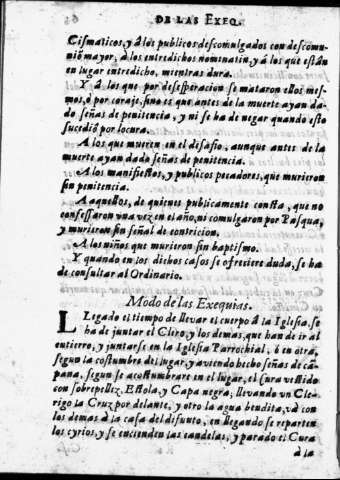 DE LAS EXEQ.
Cismaticos, y â los publicos descomulgados con descomu-
niõ mayor; â los entredichos nominatin, y á los que estãn
en lugar entredicho, mientras dura.
Y â los que por desesperacion se mataron ellos mes-
mos, ô por coraje, sino es que antes de la muerte ayan da-
do señas de penitencia, y ni se ha de negar quando esto
sucediô por locura.
A los que mueren en el desafio, aunque antes de la
muerte ayan dado señas de penitencia.
A los manifiestos, y publicos pecadores, que murieron
sin penitencia.
A aquellos, de quienes publicamente consta, que no
confessaron una vez en el año, ni comulgaron por Pasqua,
y murieron sin señal de contricion.
A los niños que murieron sin baptismo.
Y quando en los dichos casos se ofreciere duda, se ha
de consultar al Ordinario.
Modo de las Exequias.
Llegado el tiempo de llevar el cuerpo â la Iglesia, se
ha de juntar el Clero, y los demas, que han de ir al
entierro, y juntarse en la Iglesia Parrochial, ô en otra,
segun la costumbre del lugar, y aviendo hecho señas de cã-
pana, segun se acostumbrare en el lugar, el Cura vestido
con sobrepelliz, Estola, y Capa negra; llevando un Cle-
rigo la Cruz por delante, y otro la agua bendita, và con
los demas â la casa del difunto, en llegando se reparten
los cyrios, y se encienden las candelas, y parado el Cura
â la